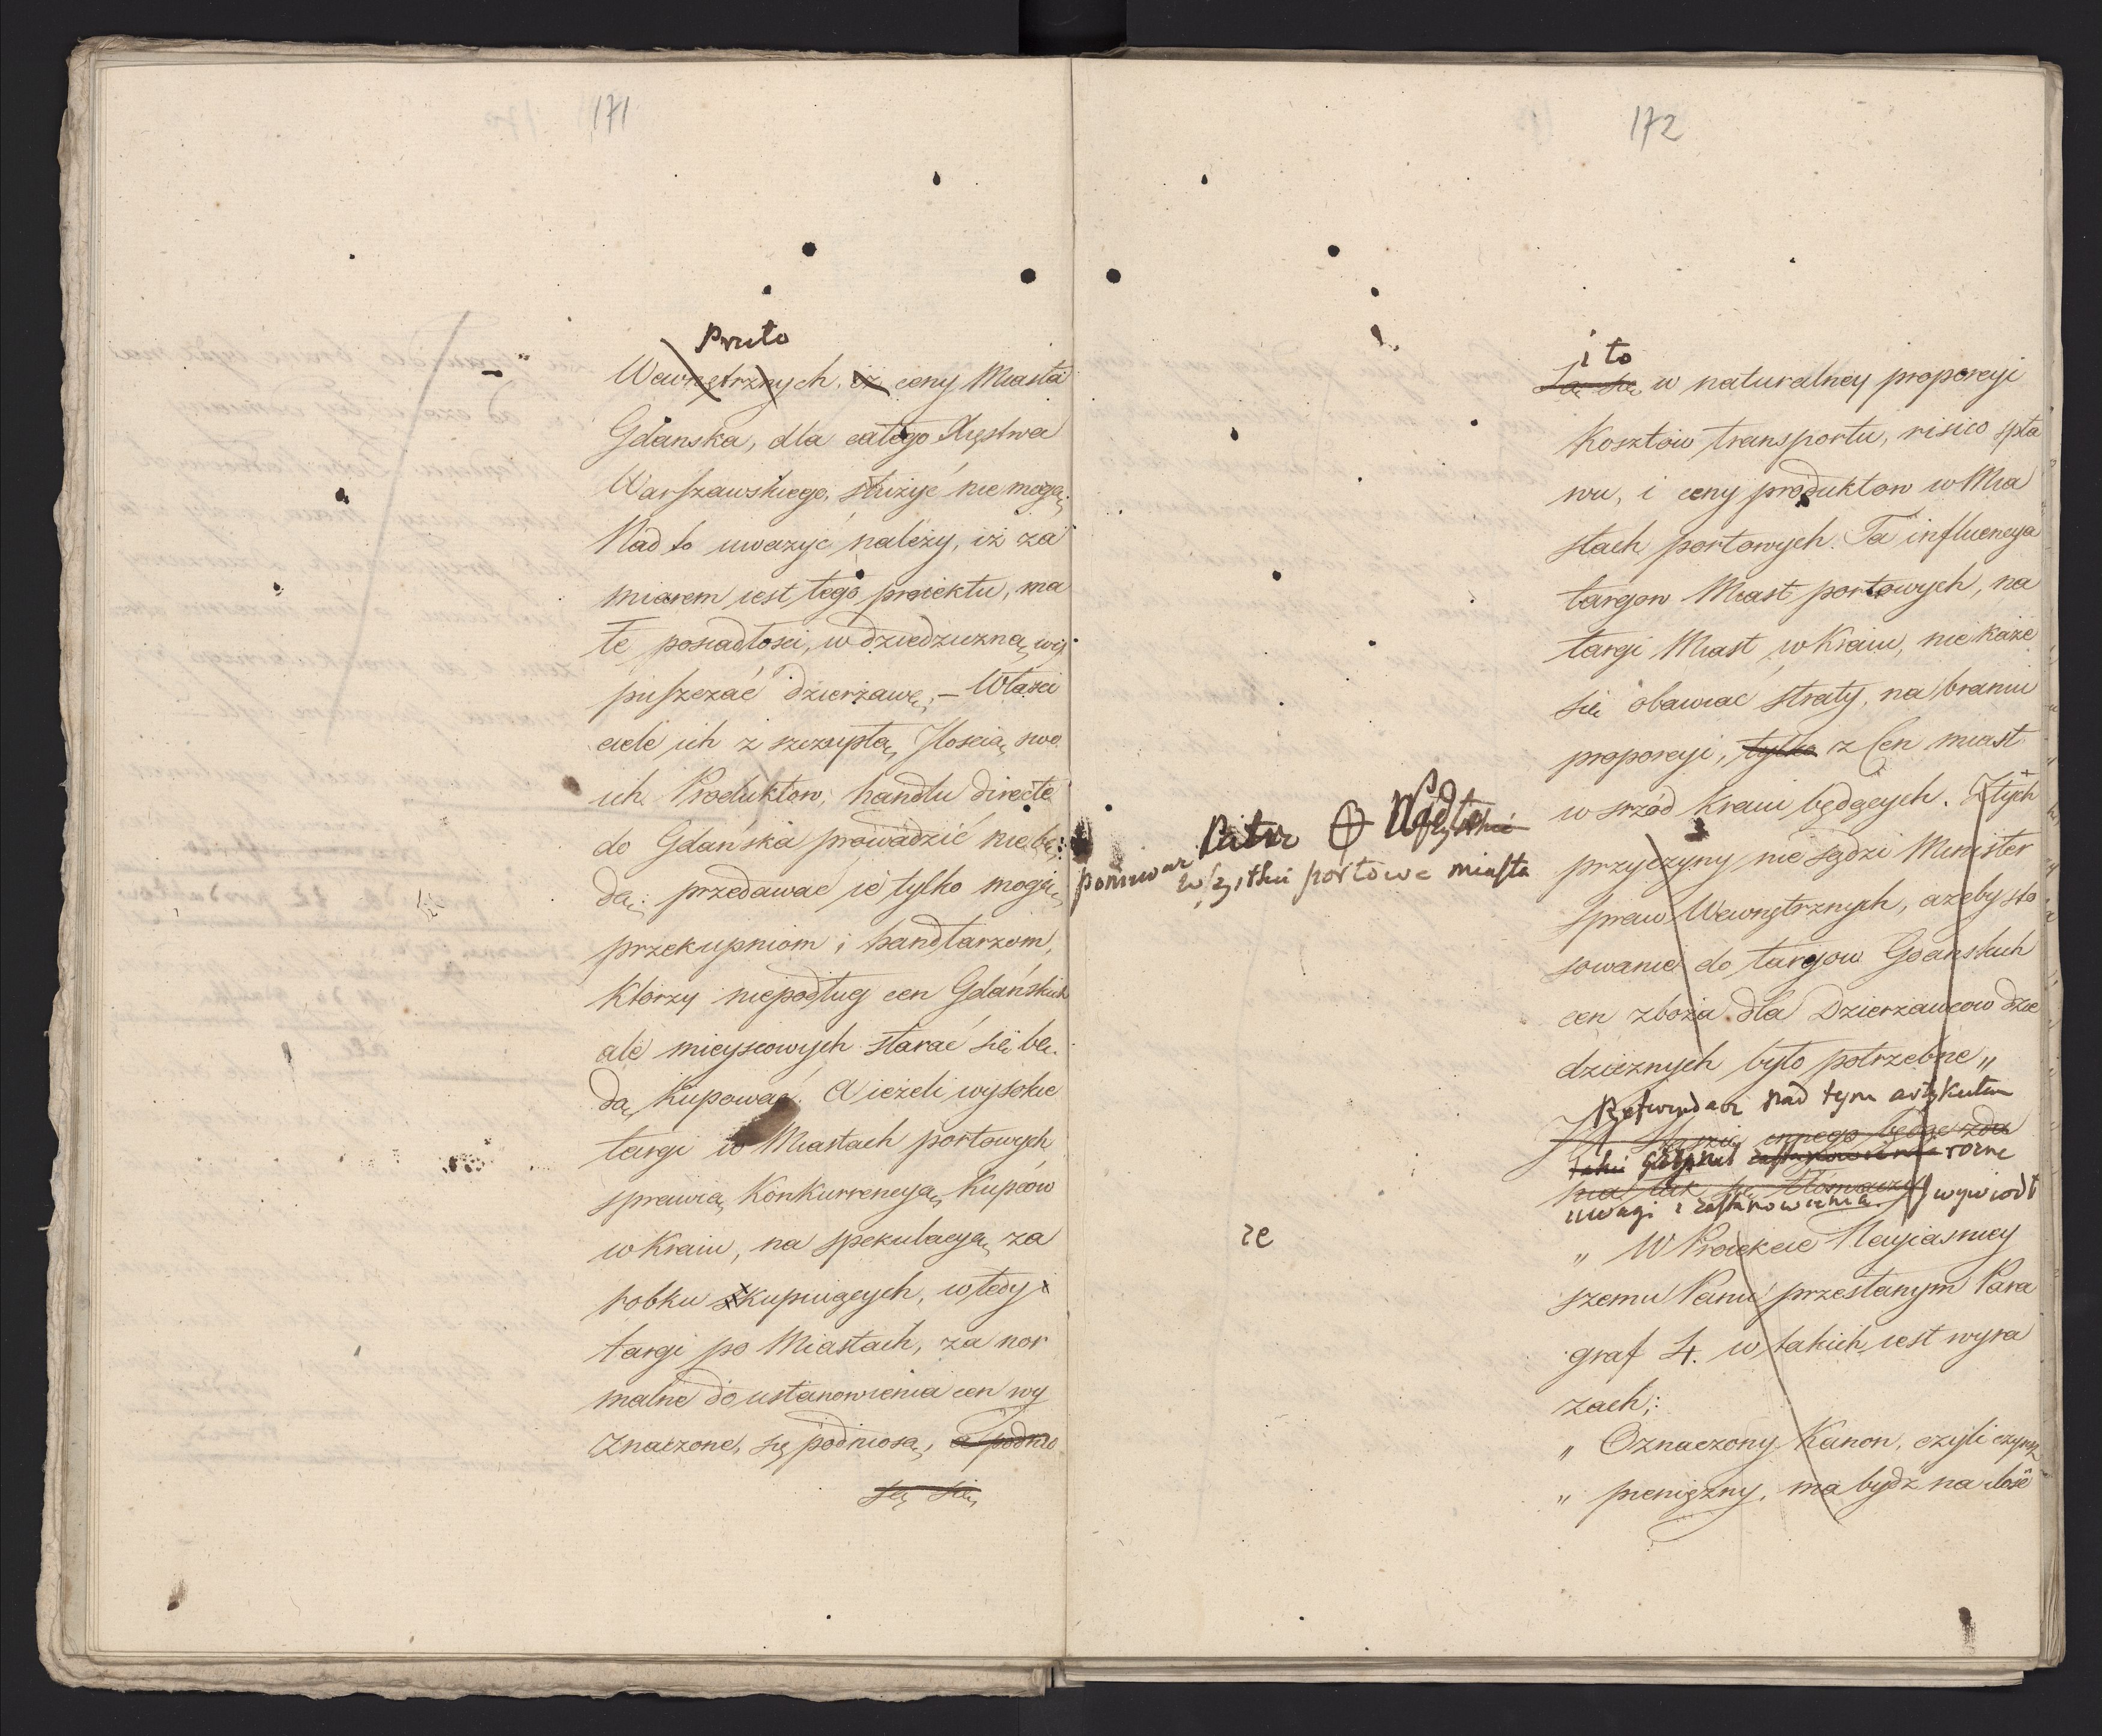 171
Przeto
Wewnętrznych, iż ceny Miasta
Gdanska, dla całego Xięstwa
Warszawskiego, służyć nie mogą;
Nad to uwazyć należy, iż za
miarem iest tego proiektu, ma
łe posiadłosci, w dziedziczną wy
puszczać dzierżawę; – Własci
ciele ich z szczupłą Ilością swo
ich Produktow, handlu directe
do Gdańska prowadzić nie bę,
dą; przedawać ie tylko mogą,
przekupniom i handlarzom,
Którzy niepodług cen Gdańskich
ale mieyscowych starać się bę
dą kupować. A ieżeli wysokie
targi w Miastach portowych
sprawią Konkurrencyą, Kupców
w Kraiu, na spekulacyą za
robku skupuiących, wtedy i
targi po Miastach, za nor
malne do ustanowienia cen wy
znaczone, się podniosą, a podnio
są się,
172
i to
są się w naturalney proporcyi
Kosztów transportu, risico spła
wu, i ceny produktow w Mia
stach portowych. Ta influencya
targow Miast portowych, na
targi Miast w Kraiu, nie każe
się obawiac straty, na braniu
proporcyi, tylko z Cen miast
w srzód Kraiu będących. Z tych
przyczyny nie sądzi Minister
Spraw Wewnętrznych, ażeby sto
sowanie do targow Gdanskich
cen zboża dla Dzierzawcow dzie
dzicznych było potrzebne „
nad tym artykułem
innego będąc zda
rożne
nia tak się tłomaczy wywiodł
uwagi i zastanowienia
„ W Proiekcie Nayiasniey
szemu Panu przesłanym Para
graf 4. w takich iest wyra
zach;
„ Oznaczony Kanon, czyli czynsz
„ pieniężny, ma bydź na ilość
Wszytkie
ponieważ wszytkie portowe miasta
że